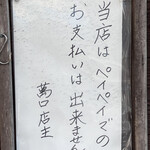 当店はペイペイでの
お支払いは出来ません
店主